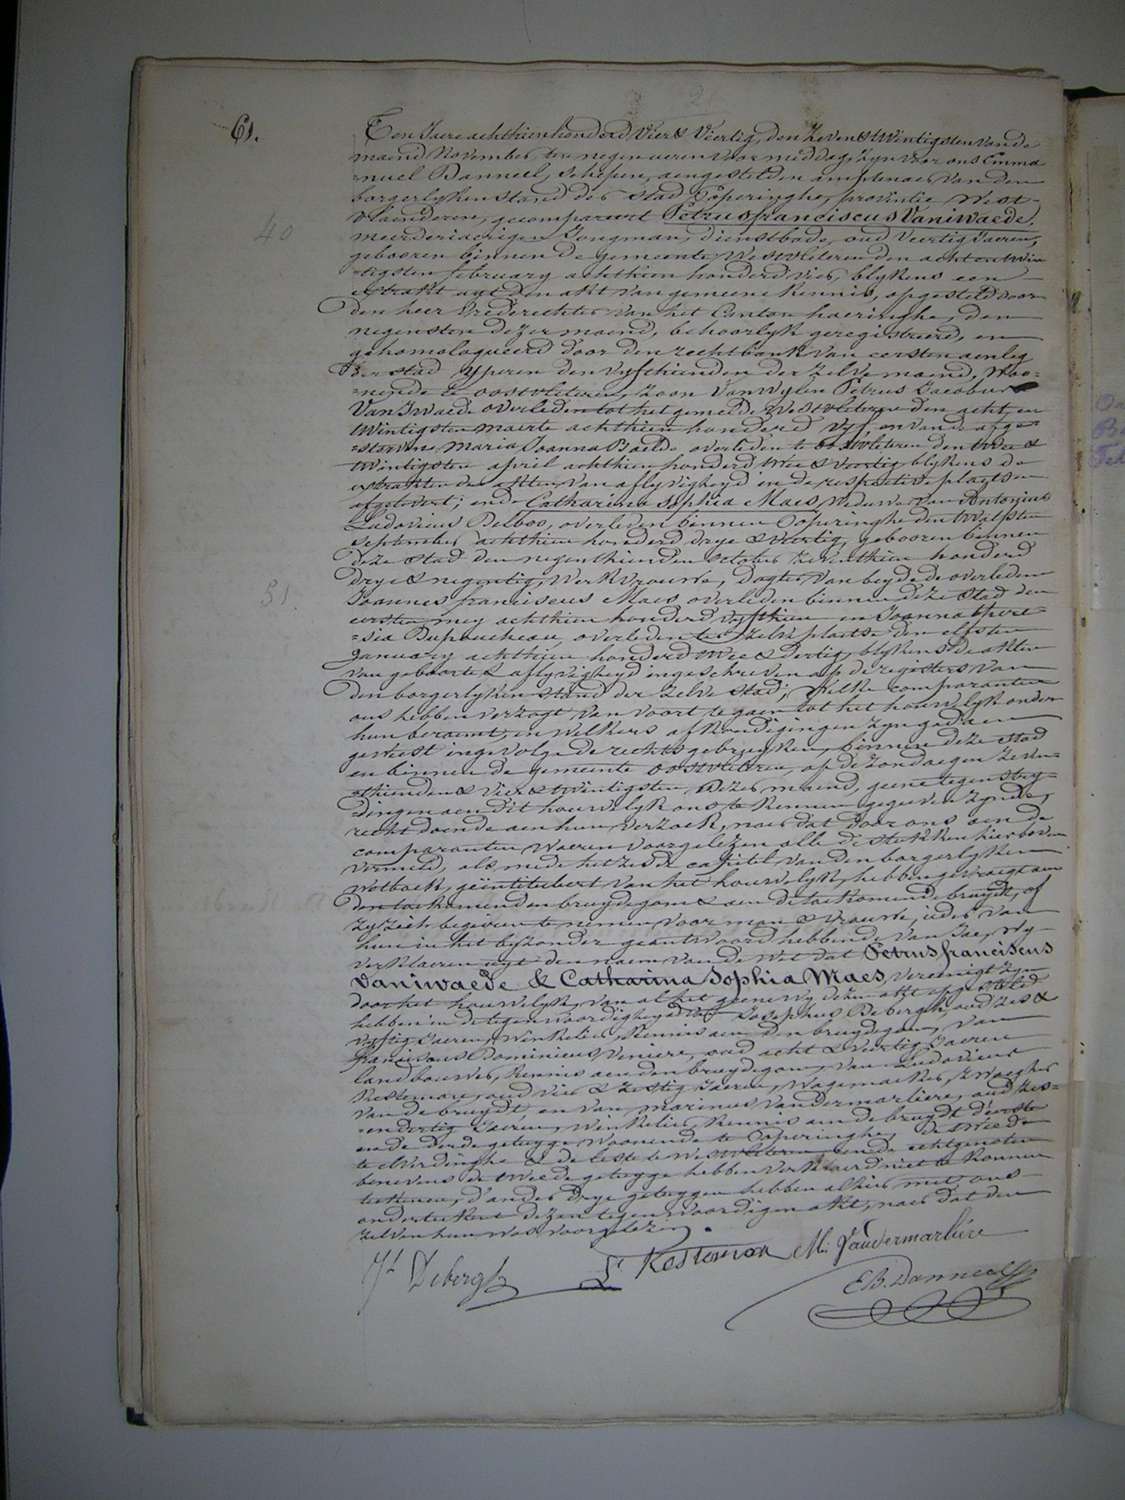 61.
Ten Jaere achthienhonderd Vier & Veertig, den Zeven & twintigsten van de
maend November, ten negen ueren voormiddag, zyn voor ons Emma-
-nuel Banneel, schepen, aengestelden amptenaer van den
borgerlyken stand der stad Poperinghe, provintie West-
Vlaenderen, gecompareert Petrus franciscus Vaniwaede,
40
meerderjaerigen Jongman, dienstbode, oud Veertig Jaeren,
gebooren binnen de gemeente Westvleteren den acht en twin-
-tigsten february achthien honderd vier, blykens een
extrakt uyt den akt van gemeene kennis, opgesteld door
den heer Vrederechter van het Canton haeringhe, den
negensten dezer maend, behoorlyk geregistreerd, en
gehomologueerd door den rechtbank van eersten aenleg
der stad Ypren den vyfthienden der zelve maend, Woo-
-nende te oostvleteren, zoon van wylen Petrus Jacobus
Van Iwaede overleden tot het gemelde Westvleteren den acht en
twintigsten maerte achthien honderd vyf, en van de afge-
-storvene Maria Joanna Baelde overleden te oostvleteren den twee &
twintigsten april achthien honderd twee & veertig blykens de
extrakten der akten van aflyvigheyd in de respective plaetsen
afgelevert; ende Catharina Sophia Maes, Weduwe van Antonius
Ludovicus Delbos, overleden binnen Poperinghe den twalfsten
september achthien honderd drye & veertig, gebooren binnen
deze stad den negenthienden october zeventhien honderd
51.
drye & negentig, Werkvrouwe, dogter van beyde de overleden
Joannes franciscus Maes overleden binnen deze stad den
eersten mey achthien honderd vyfthien en Joanna There-
-sia Dupoucheau, overleden ter zelve plaetse den elfsten
January achthien honderd twee & dertig, blykens de akten
van geboorte & aflyvigheyd ingeschreven op de registers van
den borgerlyken stand der zelve stad; Welke comparanten
ons hebben verzogt van voort te gaen tot het houwelyk onder
hun beraemt, en welkers afkondigingen zyn gedaen
geweest ingevolge de rechtsgebruyken, binnen deze stad
en binnen de gemeente oostvleteren, op de zondaegen zeven-
-thienden & Vier & twintigsten dezer maend, geene tegenstry-
-dingen aen dit houwelyk ons te kennen gegeven zynde,
recht doende aen hun verzoek, naer dat door ons aen de
comparanten waeren voorgelezen alle de stukken hierboven
vermeld, als mede het zesde capittel van den borgerlyken
Wetboek, geintituleert van het houwelyk, hebben gevraegt aen
den toekomenden bruydegom & aen de toekomende bruydt, of
zy zich begeiren te nemen voor man & vrouwe, ieder van
hun in het byzonder geantwoord hebbende van Jae, Wy
verklaeren uyt den naem van de Wet dat Petrus franciscus
Vaniwaede & Catharina Sophia Maes, vereenigt zyn
door het houwelyk, van al het geene wy dezen akt opgesteld
hebben in de tegenwoordigheyd van Josephus Debergh, oud zes &
vyftig Jaeren, Winkelier, kennis aen den bruydegom, van
franciscus Dominicus Veniere, oud acht & veertig Jaeren
landbouwer, kennis aen den bruydegom, van Ludovicus
Kestemon, oud vier & zestig Jaeren, Wagemaeker, zwaeger
van de bruydt en van marinus Vandermarliere, oud zes-
-en dertig Jaeren, Winkelier, kennis aen de bruydt d'eerste
en de derde getuyge woonende te Poperinghe, de tweede
te elverdinghe & de leste te Westvleteren en de echtgenoten
benevens de tweede getuyge hebben verklaerd niet te konnen
teekenen, d'ander drye getuygen hebben alhier met ons
onderteekent dezen tegenwoordigen akt, naer dat den
zelven hun was voorgelezen.
Jh Debergh L Kestemon M: Vandermarliére
E.B. Banneel